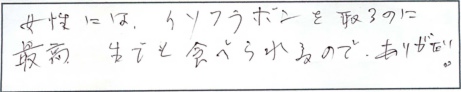 女性には、イソフラボンを取るのに
最高 生でも食べられるので、ありがたい。